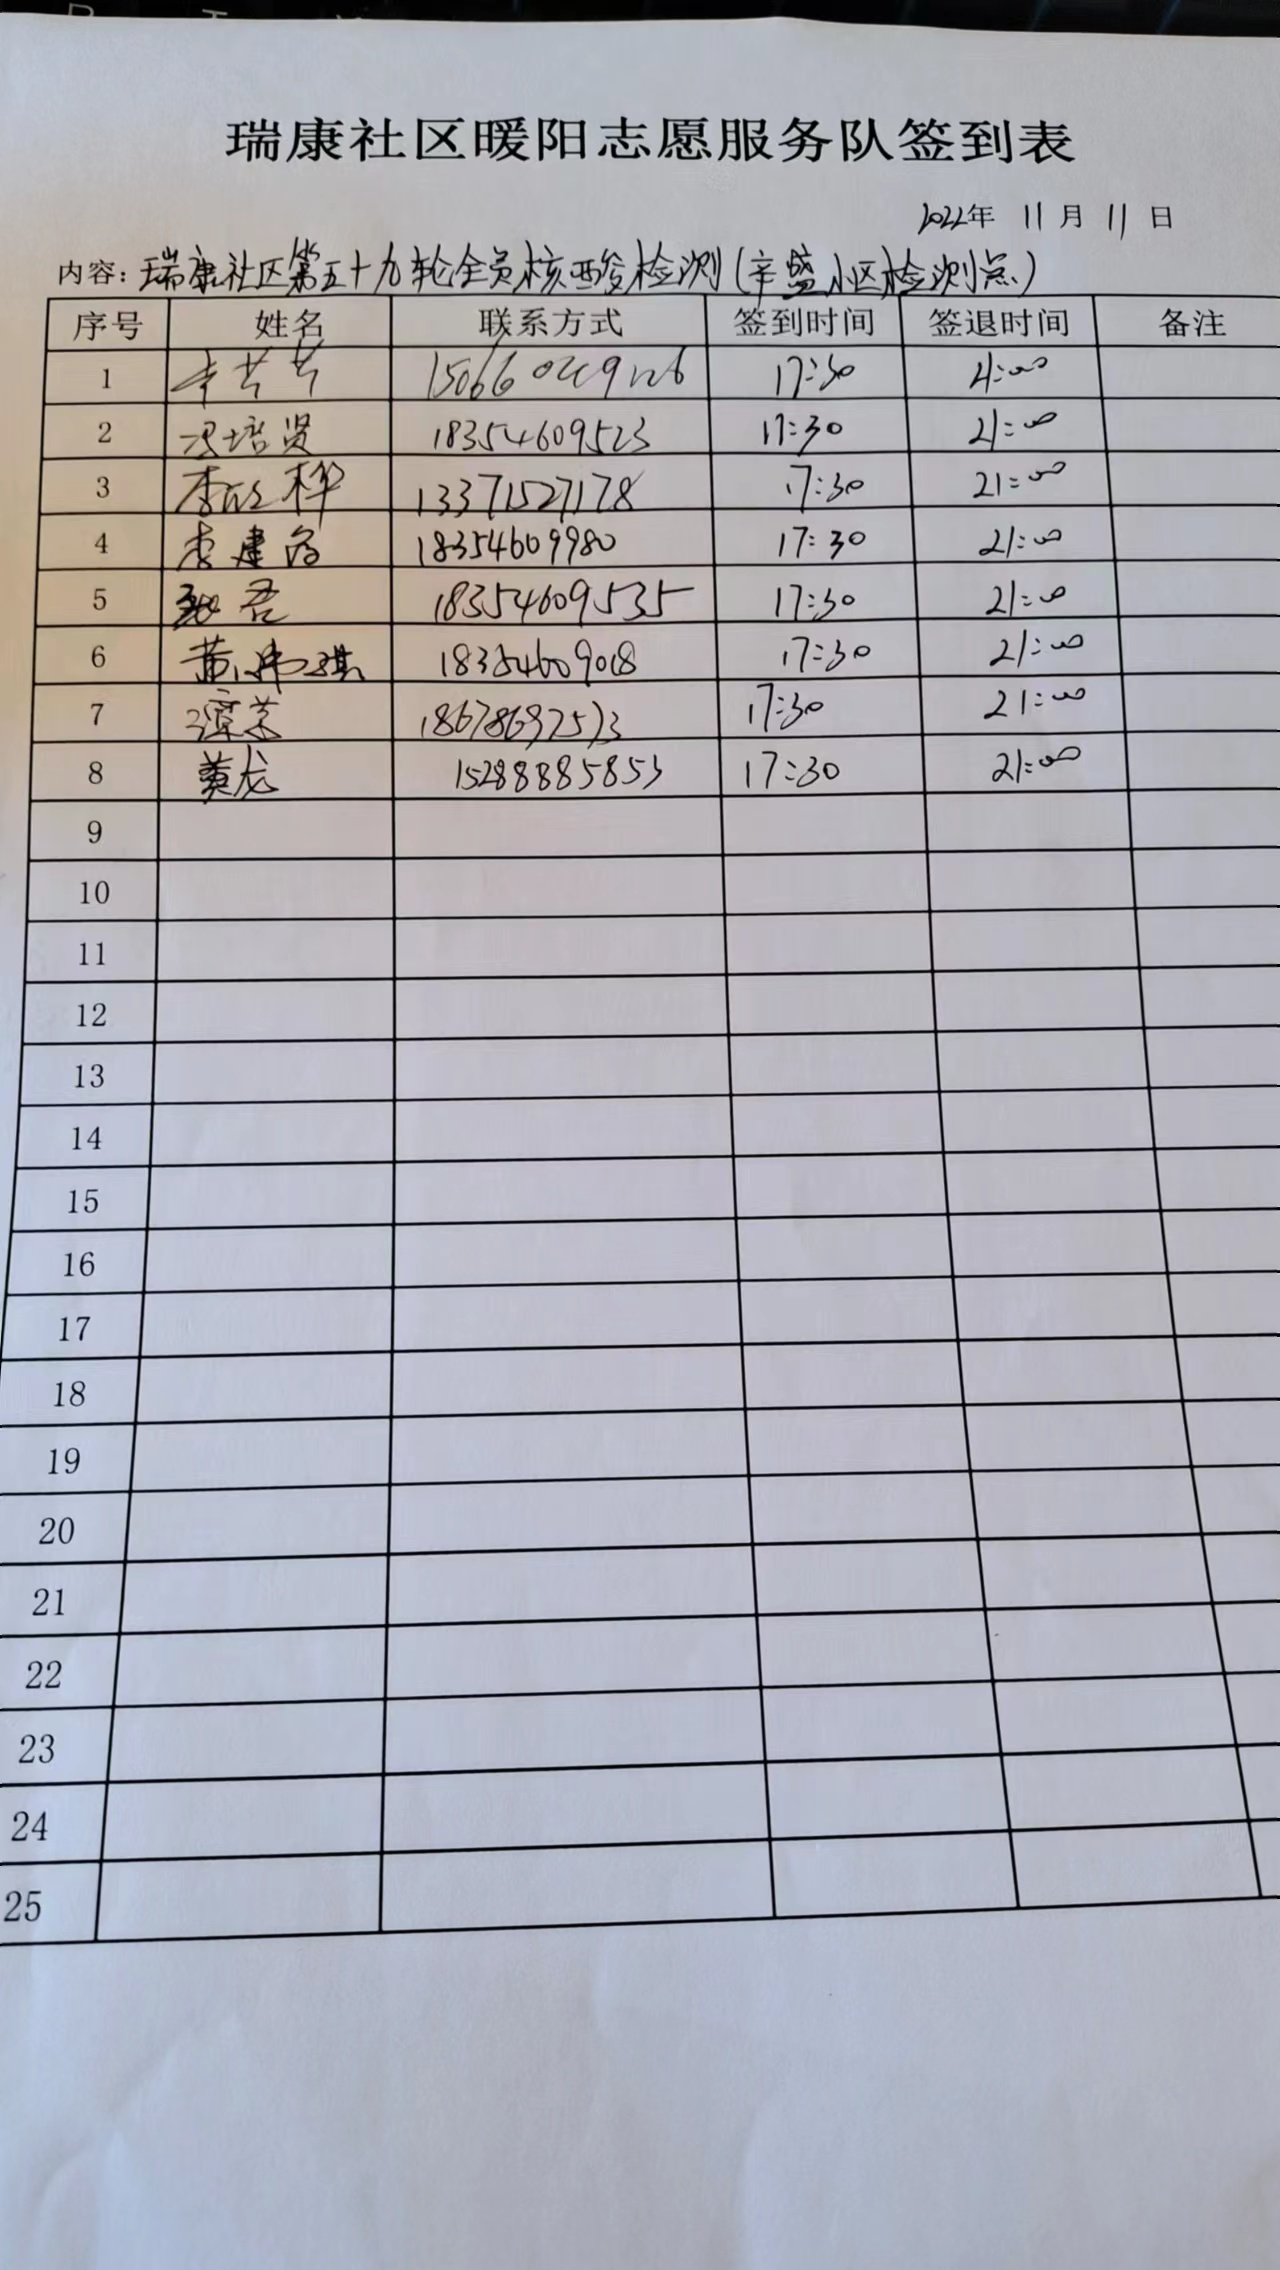 瑞康社区暖阳志愿服务队签到表
2022年 11月 11日
内容：瑞康社区第五十九轮全员核酸检测(辛盛小区检测点)
序号 姓名 联系方式 签到时间 签退时间 备注
1 17:30
2 冯培贤 18354609523 17:30 21:00
3 李欣桦 13371527178 17:30 21:00
4 李建 18354609980 17:30 21:00
5 18354609535 17:30 21:00
6 黄 琪 18354609018 17:30 21:00
7 谭芳 18678692513 17:30 21:00
8 黄龙 15288885853 17:30 21:00
9
10
11
12
13
14
15
16
17
18
19
20
21
22
23
24
25